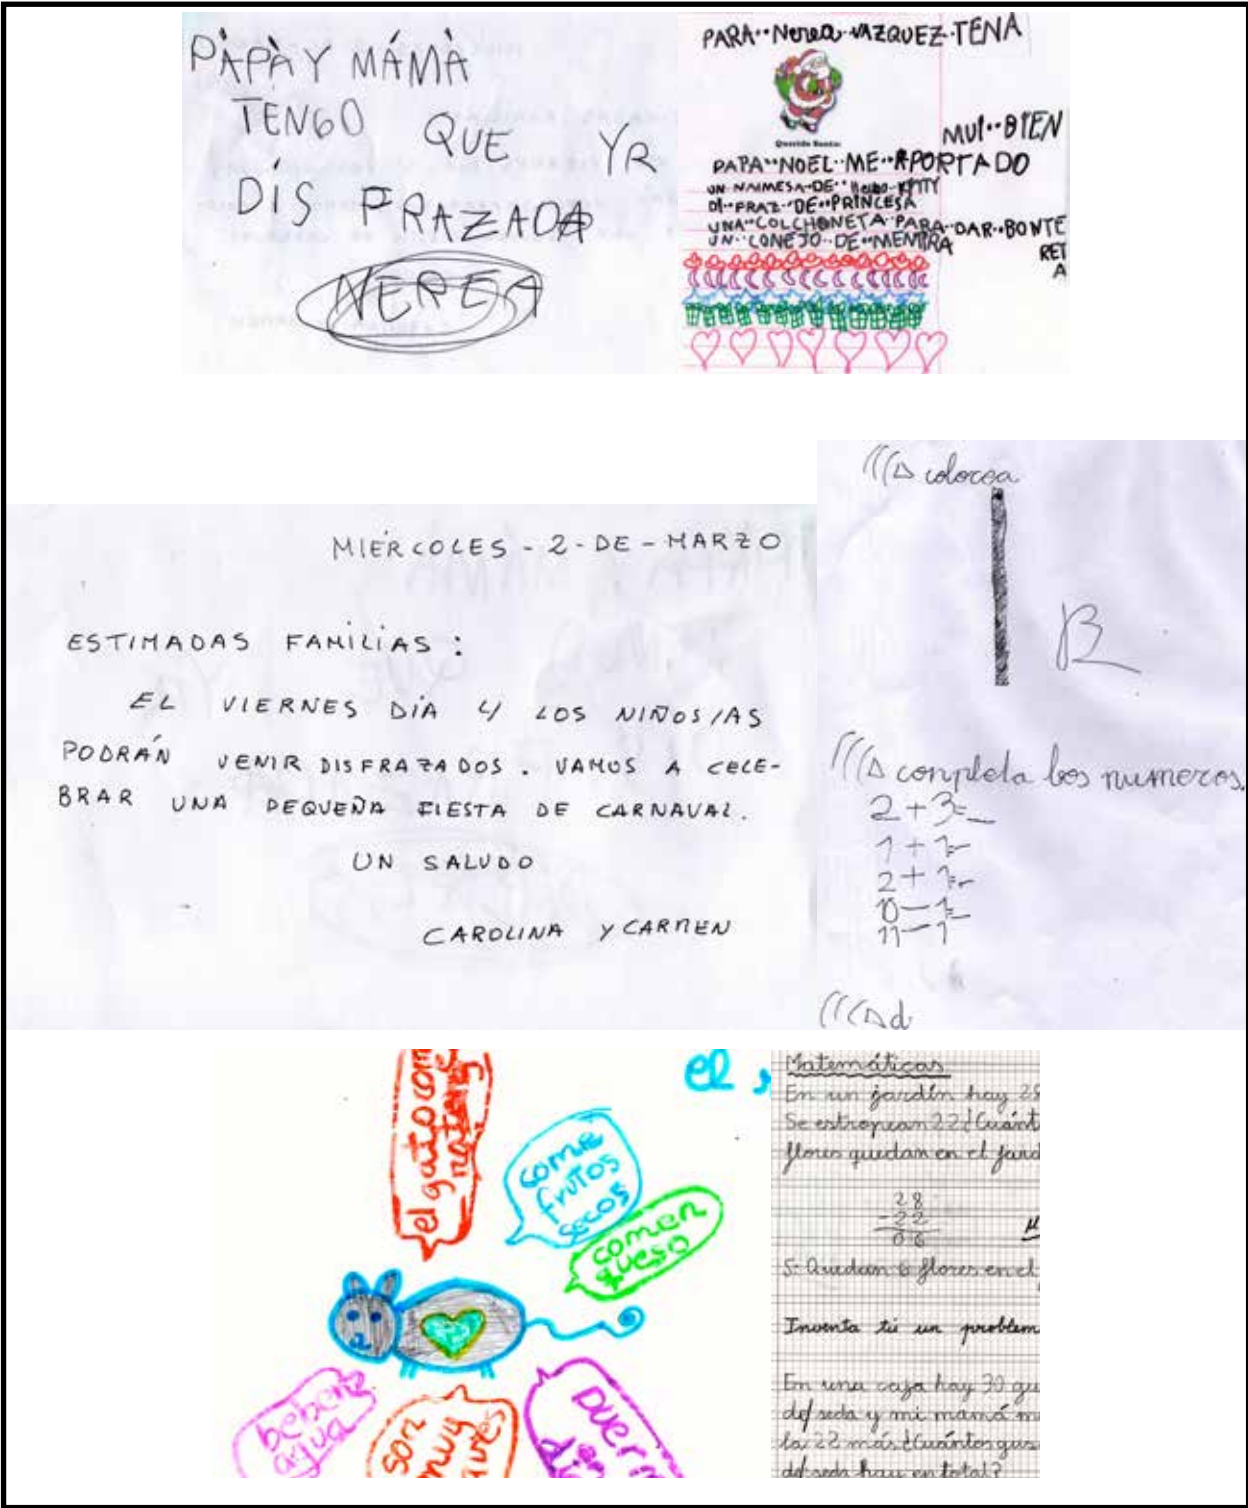 PÀPÀ Y MÁMÀ
TENGO QUE YR
DÍS FRAZADA
NEREA
PARA··Nerea··VAZQUEZ·TENA
Querido Santa:
MUI··BIEN
PAPA··NOEL··ME··APORTADO
UN NAIMESA··DE··Hello··KITTY
DI··FRAZ··DE··PRINCESA
UNA··COLCHONETA··PARA··DAR··BONTE
RET
A
UN··CONEJO··DE··MENTIRA
MIÉRCOLES - 2 - DE - MARZO
ESTIMADAS FAMILIAS :
EL VIERNES DÍA 4 LOS NIÑOS/AS
PODRÁN VENIR DISFRAZADOS. VAMOS A CELE-
BRAR UNA PEQUEÑA FIESTA DE CARNAVAL.
UN SALUDO
CAROLINA Y CARMEN
colorea
R
conpleta los numeros.
2+3=_
1+1=_
2+1=_
10-1=_
11-1
d
el gato com
raton
el
come
frutos
secos
comen
queso
beben
agua
son
muy
duerm
en
Matemáticas
En un jardín hay 28
Se estropean 22 ¿Cuánt
flores quedan en el jard
28
-22
06
S- Quedan 6 flores en el
Inventa tú un problem
En una caja hay 30 gu
de seda y mi mamá m
la 22 más ¿Cuántos gus
de seda hay en total?